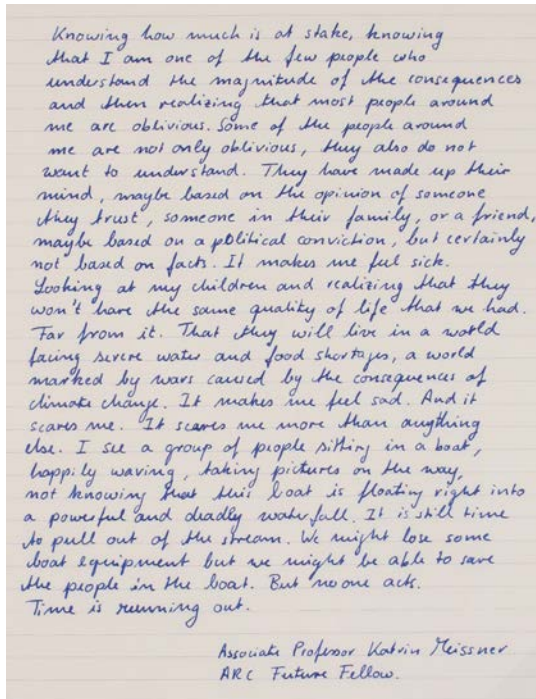 Knowing how much is at stake, knowing
that I am one of the few people who
understand the magnitude of the consequences
and then realizing that most people around
me are oblivious. Some of the people around
me are not only oblivious, they also do not
want to understand. They have made up their
mind, maybe based on the opinion of someone
they trust, someone in their family, or a friend,
maybe based on a political conviction, but certainly
not based on facts. It makes me feel sick.
Looking at my children and realizing that they
won't have the same quality of life that we had.
Far from it. That they will live in a world
facing severe water and food shortages, a world
marked by wars caused by the consequences of
climate change. It makes me feel sad. And it
scares me. It scares me more than anything
else. I see a group of people sitting in a boat,
happily waving, taking pictures on the way,
not knowing that this boat is floating right into
a powerful and deadly waterfall. It is still time
to pull out of the stream. We might lose some
boat equipment but we might be able to save
the people in the boat. But no one acts.
Time is running out.
Associate Professor Katrin Meissner
ARC Future Fellow.